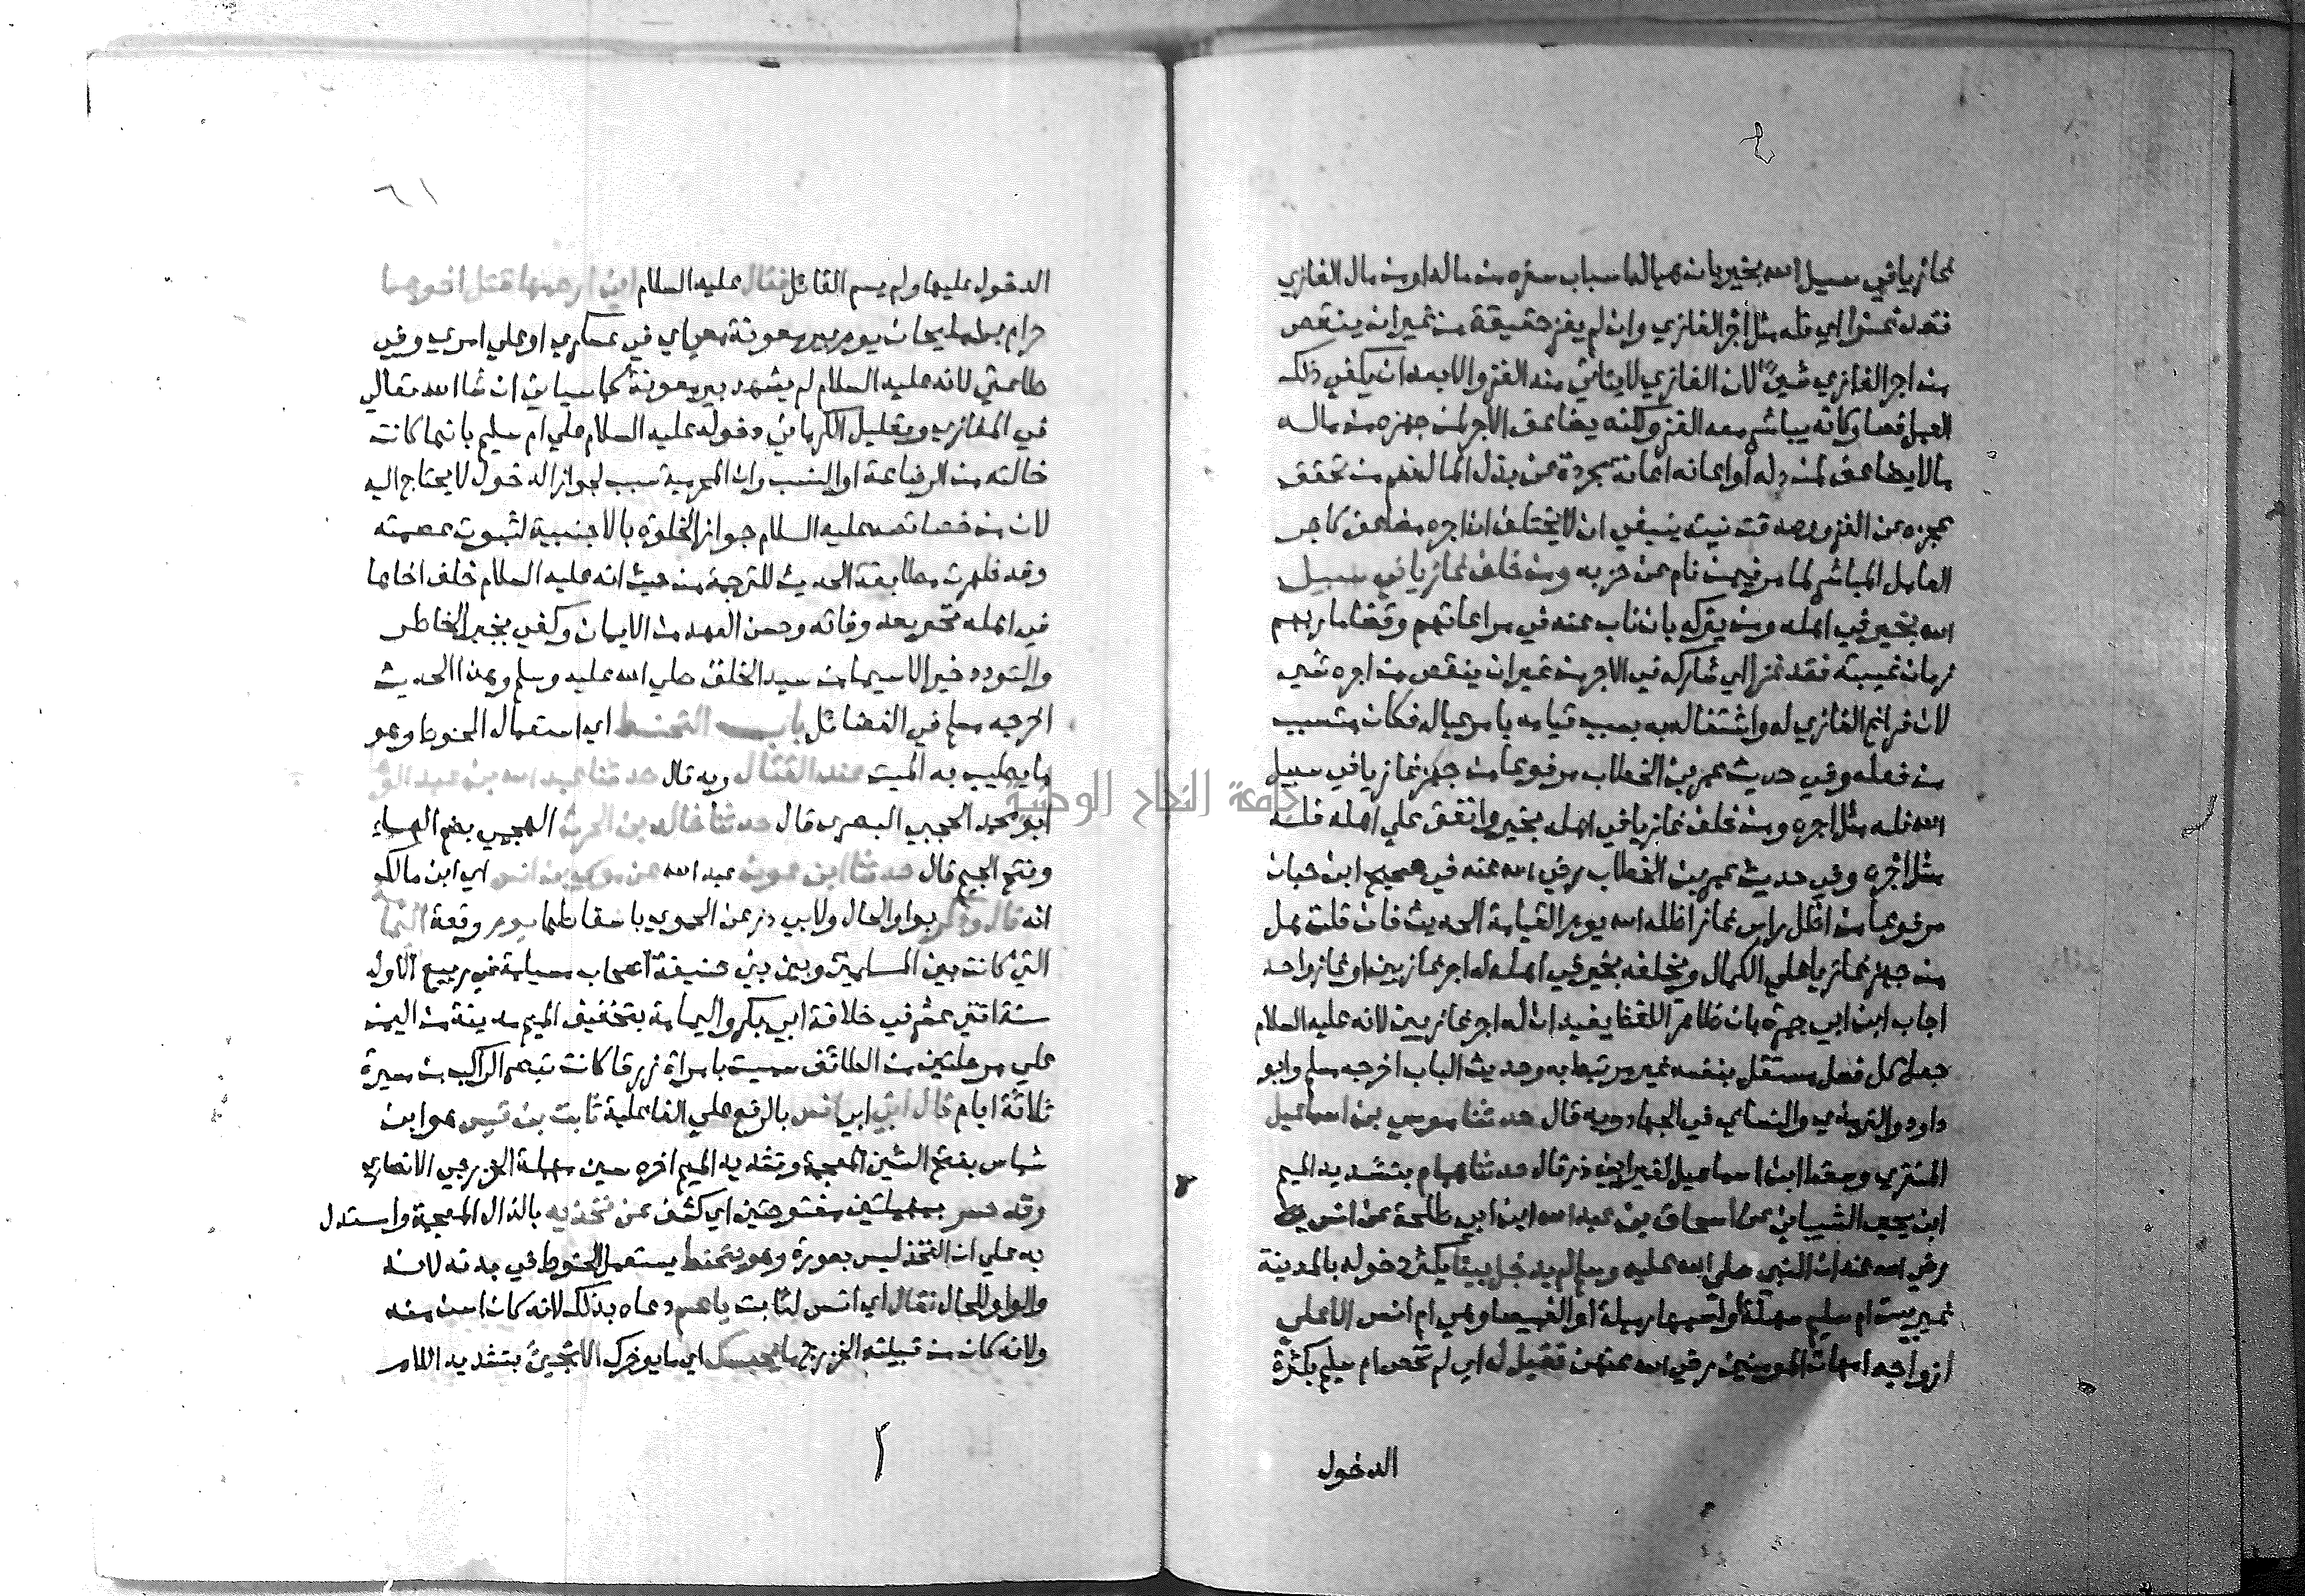 غازيا في سبيل الله بخير بان هيا له اسباب سفره من ماله او من مال الغازي
فقد غزا اي فله مثل اجر الغازي وان لم يغز حقيقة من غير ان ينقص
من اجر الغازي شيئا لان الغازي لا يتاتي منه الغزو الا بعد ان يكفي ذلك
العمل فصار كانه يباشر معه الغزو ولكنه يضاعف الاجر لمن جهزه من ماله
ما لا يضاعف لمن دله او اعانه اعانة مجردة عن بذل المال نعم من تحقق
عجزه عن الغزو وصدقت نيته ينبغي ان لا يختلف ان اجره مضاعف كاجر
العامل المباشر لما مر فيمن نام عن حزبه ومن خلف غازيا في سبيل
الله بخير في اهله ومن يتركه بان ناب عنه في مراعاتهم وقضا ماربهم
زمان غيبته فقد غزا اي شاركه في الاجر من غير ان ينقص من اجره شي
لان فراغ الغازي له واشتغاله به بسبب قيامه بامر عياله فكان متسبب
من فعله وفي حديث عمر بن الخطاب مرفوعا من جهز غازيا في سبيل
الله فله مثل اجره ومن خلف غازيا في اهله بخير وانفق علي اهله فله
مثل اجره وفي حديث عمر بن الخطاب رضي الله عنه في صحيح ابن حبان
مرفوعا من اظل راس غاز اظله الله يوم القيامة الحديث فان قلت هل
من جهز غازيا علي الكمال ويخلفه بخير في اهله له اجر غازيين او غاز واحد
اجاب ابن ابي جمرة بان ظاهر اللفظ يفيد ان له اجر غازيين لانه عليه السلام
جعل كل فعل مستقل بنفسه غير مرتبط به وحديث الباب اخرجه مسلم وابو
داود والترمذي والنساي في الجهاد وبه قال حدثنا موسي بن اسماعيل
المنقري وسقط ابن اسماعيل لغير ابي ذر قال حدثنا همام بتشديد الميم
ابن يحيي الشيباني عن اسحاق بن عبد الله ابن ابي طلحة عن انس
رضي الله عنه ان النبي صلي الله عليه وسلم لم يدخل بيتا يكثر دخوله بالمدينة
غير بيت ام سليم سهلة واسمها رميلة او الغميصا وهي ام انس الا علي
ازواجه امهات المومنين رضي الله عنهن فقيل له اي لم تخص ام سليم بكثرة
الدخول
٦١
الدخول عليها ولم يسم القائل فقال عليه السلام اني ارحمها قتل اخوها
حرام بن ملحان يوم بير معونة معي اي في عسكري او علي امري وفي
طاعتي لانه عليه السلام لم يشهد بير معونة كما سياتي ان شا الله تعالي
في المغازي وتعليل الكرماني دخوله عليه السلام علي ام سليم بانها كانت
خالته من الرضاعة او النسب وان المحرمية سبب لجواز الدخول لا يحتاج اليه
لان من خصائصه عليه السلام جواز الخلوة بالاجنبية لثبوت عصمته
وقد ظهرت مطابقة الحديث للترجمة من حيث انه عليه السلام خلف اخاها
في اهله بخير بعد وفاته وحسن العهد من الايمان وكفي بجبر الخاطر
والتودد خيرا لا سيما من سيد الخلق صلي الله عليه وسلم وهذا الحديث
اخرجه مسلم في الفضائل باب التحنط اي استعمال الحنوط وهو
ما يطيب به الميت عند القتال وبه قال حدثنا عبد الله بن عبد الوها
ابو محمد الحجبي البصري قال حدثنا خالد بن الحرث الهجيمي بضم الهاء
وفتح الجيم قال حدثنا ابن عون عبد الله عن موسي بن انس اي ابن مالك
انه قال وذكر بواو الحال ولابي ذر عن الحموي باسقاطها يوم وقعة اليما
التي كانت بين المسلمين وبين بني حنيفة اصحاب مسيلمة في ربيع الاول
سنة اثني عشر في خلافة ابي بكر واليمامة بتخفيف الميم مدينة من اليمن
علي مرحلتين من الطائف سميت بامراة زرقا كانت تبصر الراكب من مسيرة
ثلاثة ايام قال اتي ابي انس بالرفع علي الفاعلية ثابت بن قيس هو ابن
شماس بفتح الشين المعجمة وتشديد الميم اخره سين مهملة الخزرجي الانصاري
وقد حسر بمهملتين مفتوحتين اي كشف عن فخذيه بالذال المعجمة واستدل
به علي ان الفخذ ليس بعورة وهو يتحنط يستعمل الحنوط في بدنه لانه
والواو للحال فقال اي انس لثابت يا عم دعاه بذلك لانه كان اسن منه
ولانه كان من قبيلته الخزرج ما يحبسك اي ما يوخرك الا تجيئ بتشديد اللام
جامعة النجاح الوطنية